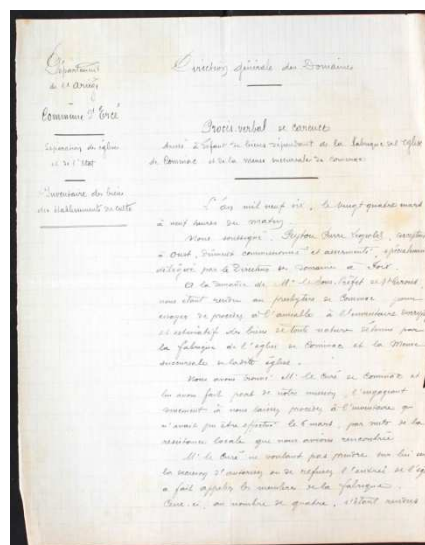 Département
de l'Ariège
Commune d'Ercé
Séparation des églises
et de l'Etat
Inventaire des biens
des établissements de culte
Direction générale des Domaines
Procès-verbal de carence
dressé à défaut de biens dépendant de la fabrique de l'église
de Cominac et de la mense succursale de Cominac
L'an mil neuf six, le vingt quatre mars
à neuf heures du matin,
Nous soussigné, Peytou Pierre Léopold,
à Oust, dûment commissionné et assermenté, spécialement
délégué par le Directeur des Domaines à Foix,
A la requête de Mr le Sous-Préfet de St Girons,
nous étant rendu au presbytère de Cominac pour
essayer de procéder à l'amiable à l'inventaire
et estimatif des biens de toute nature détenus par
la fabrique de l'église de Cominac et la Mense
succursale de ladite église.
Nous avons trouvé Mr le Curé de Cominac et
lui avons fait part de notre mission, l'engageant
à nous laisser procéder à l'inventaire qui
n'avait pu être effectué le 6 mars, par suite de la
résistance locale que nous avions rencontrée
Mr le Curé ne voulant pas prendre sur lui
la mission d'autoriser ou de refuser l'entrée de
a fait appeler les membres de la fabrique.
Ceux-ci, au nombre de quatre, s'étant rendus